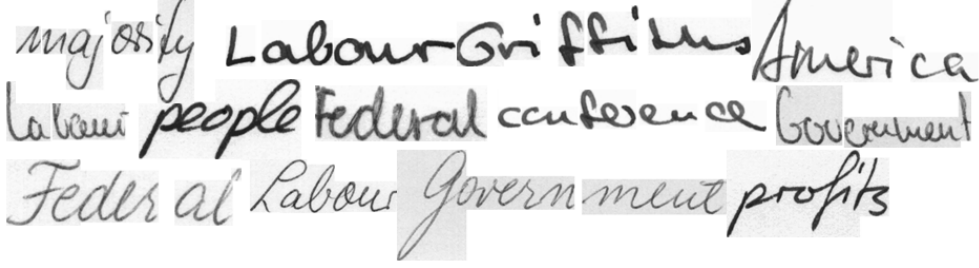 majority Labour Griffiths America
Labour people Federal conference Government
Federal Labour Government profits